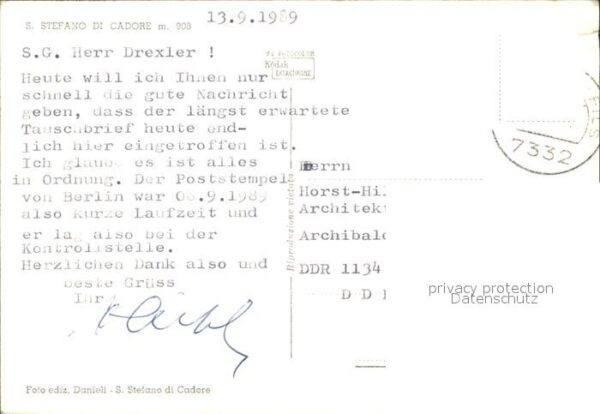 13.9.1989
S. STEFANO DI CADORE m. 908
S.G. Herr Drexler !
Heute will ich Ihnen nur
schnell die gute Nachricht
geben, dass der längst erwartete
Tauschbrief heute end-
lich hier eingetroffen ist.
Ich glaube es ist alles
in Ordnung. Der Poststempel
von Berlin war 06.9.1989
also kurze Laufzeit und
er lag also bei der
Kontrollstelle.
Herzlichen Dank also und
beste Grüss
Ihr
Foto ediz. Danieli - S. Stefano di Cadore
Kodak
EKTACHROME
Riproduzione vietata
7332
Herrn
Horst-Hil
Architek
Archibald
DDR 1134
D D
privacy protection
Datenschutz